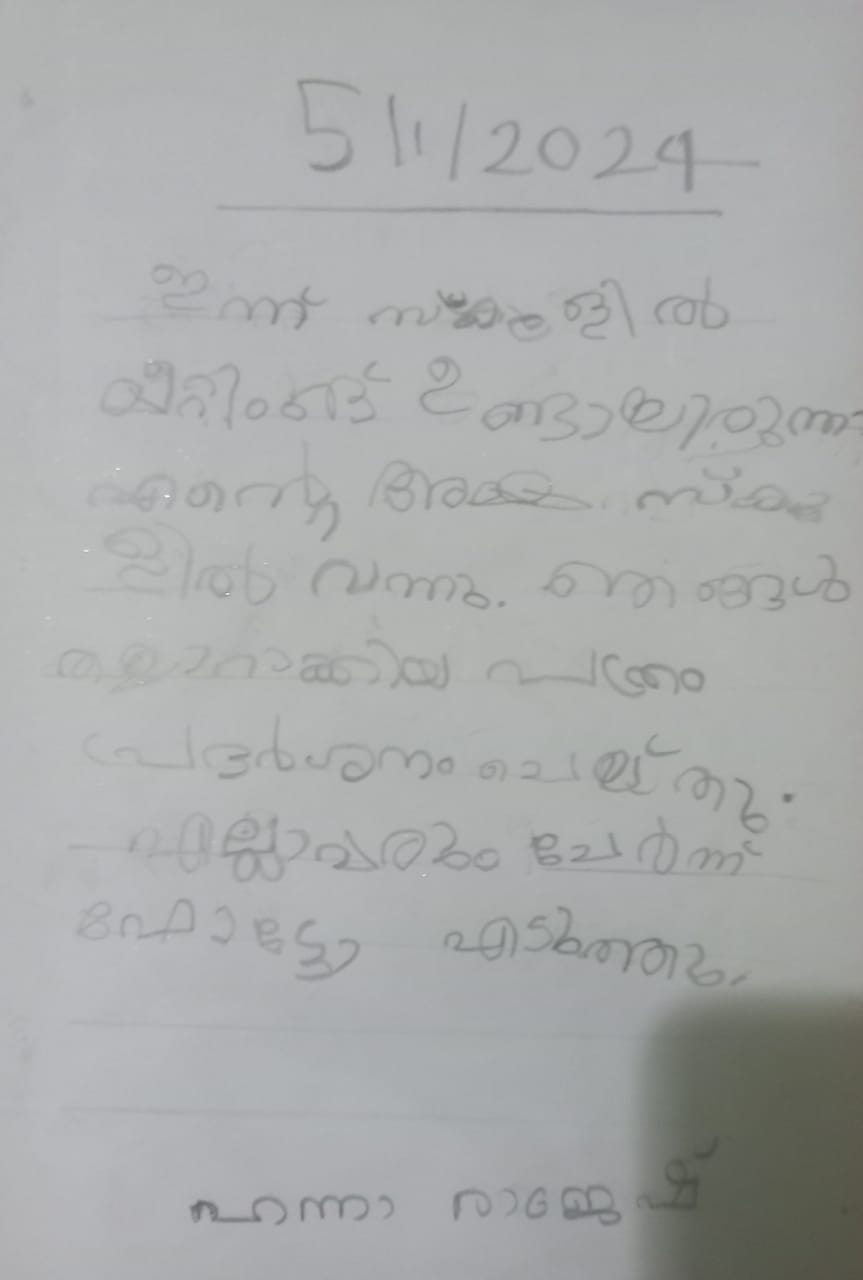 5/11/2024
ഇന്ന് സ്കൂളിൽ
മീറ്റിംങ്ങ് ഉണ്ടായിരുന്നു
എന്റെ അമ്മ സ്കൂ
ളിൽ വന്നു. ഞങ്ങൾ
തയ്യാറാക്കിയ പത്രം
പ്രദർശനം ചെയ്തു.
എല്ലാവരും ചേർന്ന്
ഫോട്ടോ എടുത്തു.
ഹന്നാ രാജേഷ്